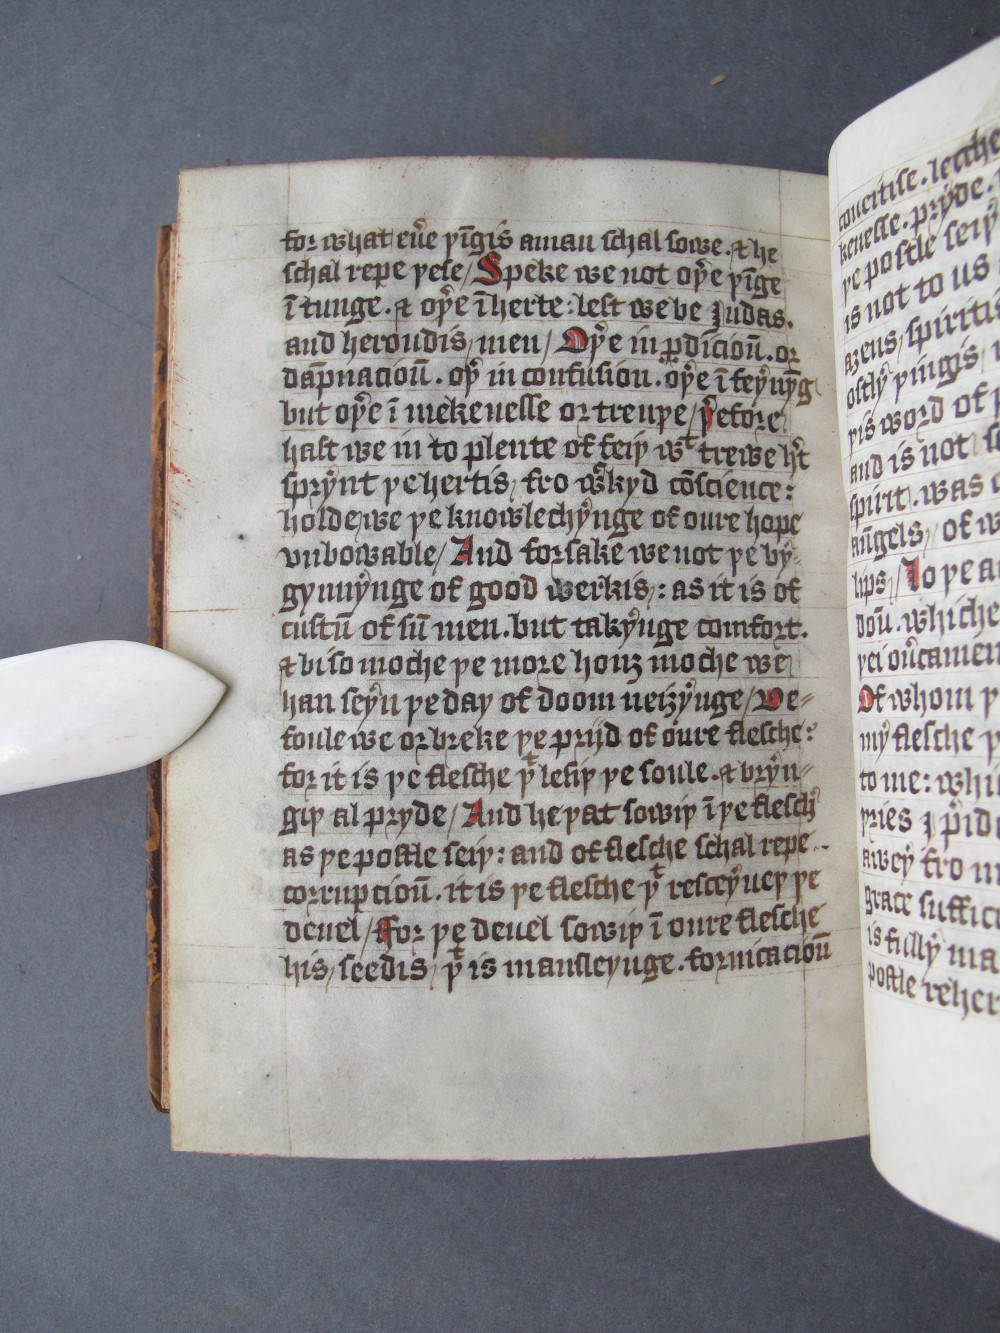 for what eũe yīgis aman schal sowe. & he
schal repe yese / Speke we not oyͤe yīge
ī tunge. & oyͤe ī herte: lest we be Judas.
and heroudis, men / Oyͤe in ꝑdicioū. or
dap̄nacioū. oyͤ in confusion. oyͤe ī feyny̅g
but oyͤe ī mekenesse or treuye / yͤefore
hast we in to plente of feiy wᵗ trewe hᵗ
sprynt ye hertis, fro wᵏkyd cōscience:
holde we ye knowlechynge of oure hope
vnbowable / And forsake we not ye by
gynnynge of good werkis,: as it is of
custū of sū men. but takynge comfort.
& bi so moche ye more houȝ moche we
han seyn ye day of doom neiȝynge / De⸗
foule we or breke ye prijd of oure flesche:
for it is ye flesche yᵗ lesiy ye soule. & bryn⸗
giy al pryde / And he yat sowiy ī ye flesch̄
as ye postle seiy: and of flesche schal repe
corrupcioū. it is ye flesche yᵗ resceyuey ye
deuel / For ye deuel sowiy ī oure flesche
his, seedis, yᵗ is mansleynge. fornicacioū
coueitise. lecche
kenesse. pryde.
ye postle seiy
is not to us
aȝens, spiritu
ostly yingis,
yis word of
and is not
spirit. was
aūgels, of w
lips, / To ye a
doū. whiche
yei oũcamen
Of whom y
my flesche y
to me: whi
yries I p̄id
awey fro m
grace suffici
is fully ma
postle reher